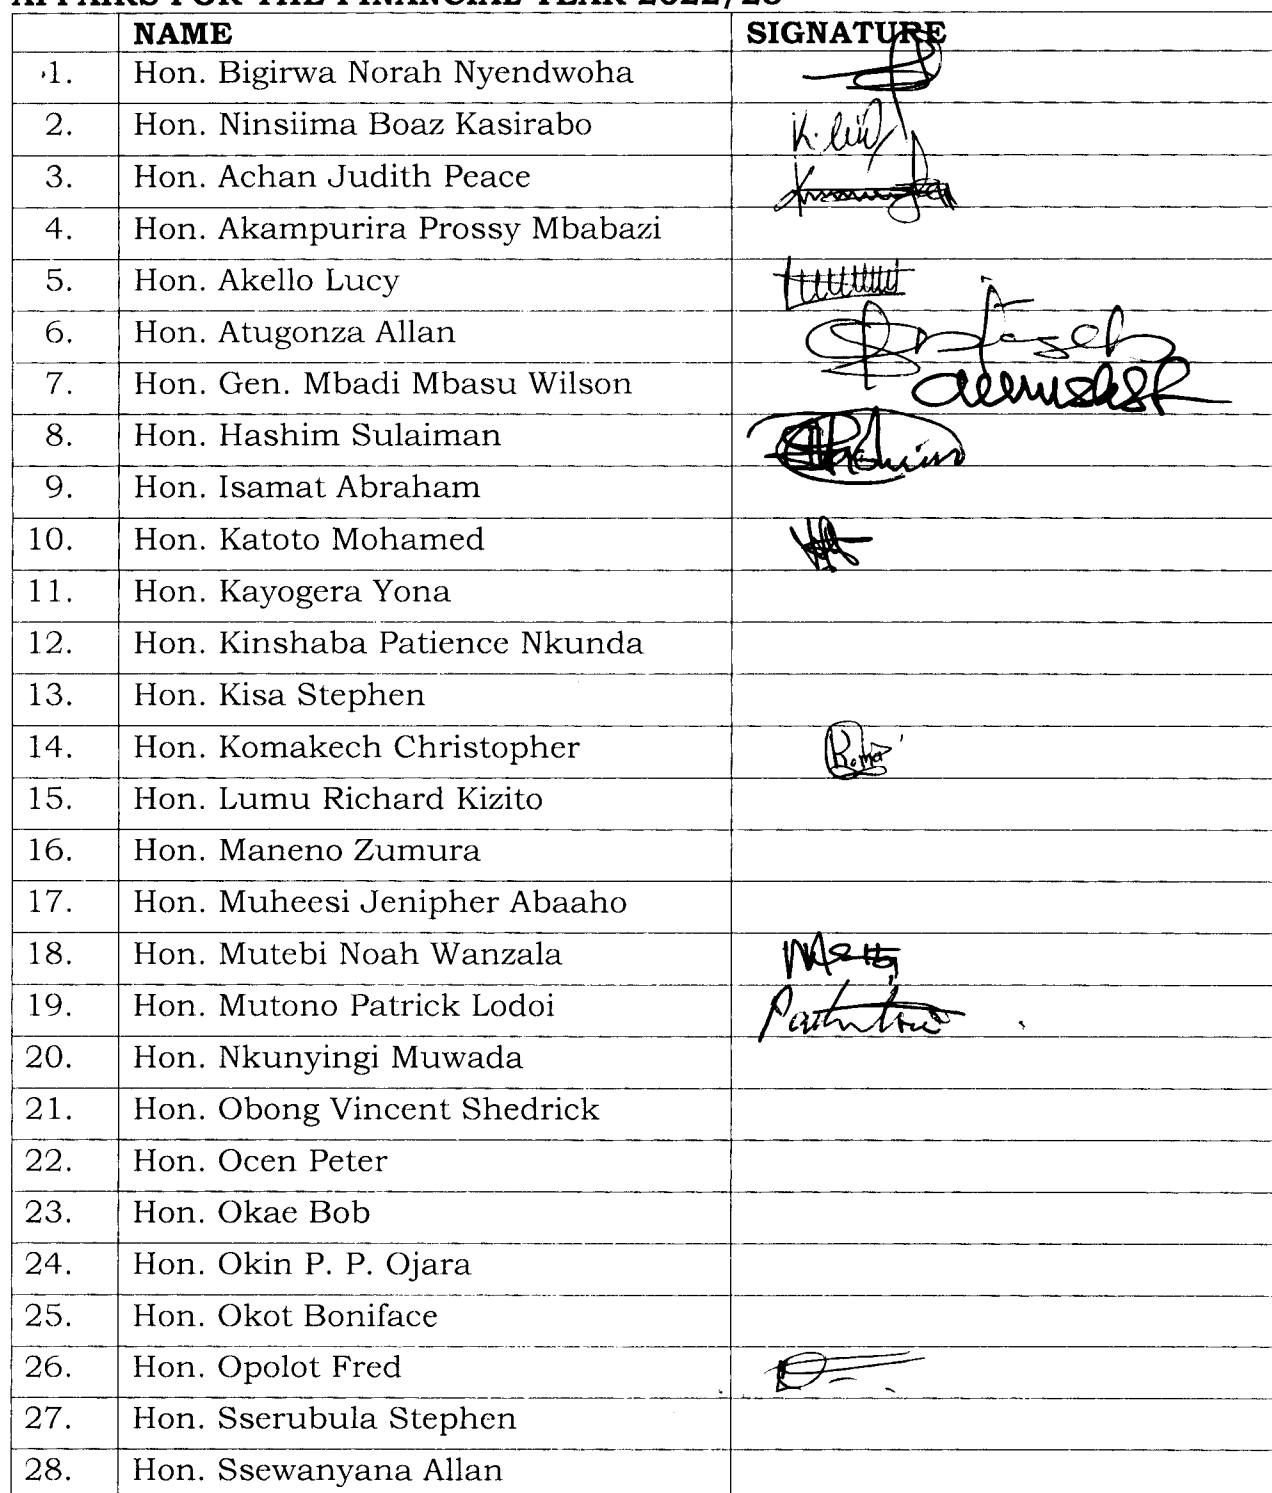 AFFAIRS FOR THE FINANCIAL YEAR 2022/23
NAME SIGNATURE
1. Hon. Bigirwa Norah Nyendwoha
2. Hon. Ninsiima Boaz Kasirabo
3. Hon. Achan Judith Peace
4. Hon. Akampurira Prossy Mbabazi
5. Hon. Akello Lucy
6. Hon. Atugonza Allan
7. Hon. Gen. Mbadi Mbasu Wilson
8. Hon. Hashim Sulaiman
9. Hon. Isamat Abraham
10. Hon. Katoto Mohamed
11. Hon. Kayogera Yona
12. Hon. Kinshaba Patience Nkunda
13. Hon. Kisa Stephen
14. Hon. Komakech Christopher
15. Hon. Lumu Richard Kizito
16. Hon. Maneno Zumura
17. Hon. Muheesi Jenipher Abaaho
18. Hon. Mutebi Noah Wanzala
19. Hon. Mutono Patrick Lodoi
20. Hon. Nkunyingi Muwada
21. Hon. Obong Vincent Shedrick
22. Hon. Ocen Peter
23. Hon. Okae Bob
24. Hon. Okin P. P. Ojara
25. Hon. Okot Boniface
26. Hon. Opolot Fred
27. Hon. Sserubula Stephen
28. Hon. Ssewanyana Allan